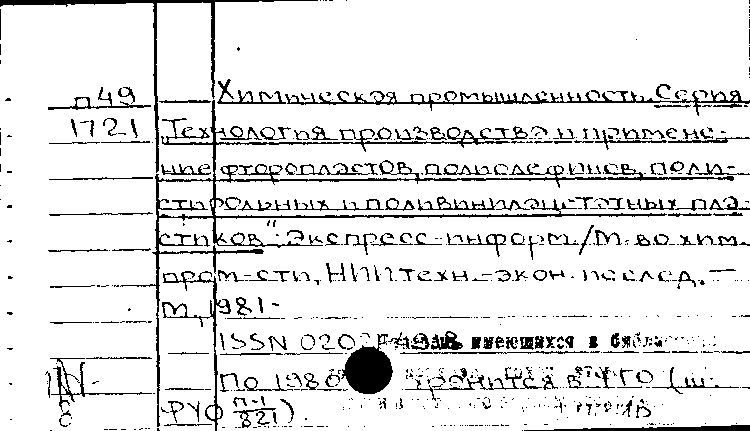 п49 Химическая промышленность. Серия
1721 „Технология производства и примене-
ние фторопластов, полиолефинов, поли-
стирольных и поливинилацетатных пла-
стиков": Экспресс-информ./М-во хим.
пром-сти, НИИ техн.-экон. исслед. —
М., 1981-
ISSN 020 имеющихся в
По 1980 хранится в ФГО (ш.
8 ФУФ п-1
821).